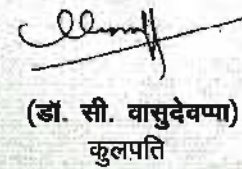 (डॉ. सी. वासुदेवप्पा)
कुलपति